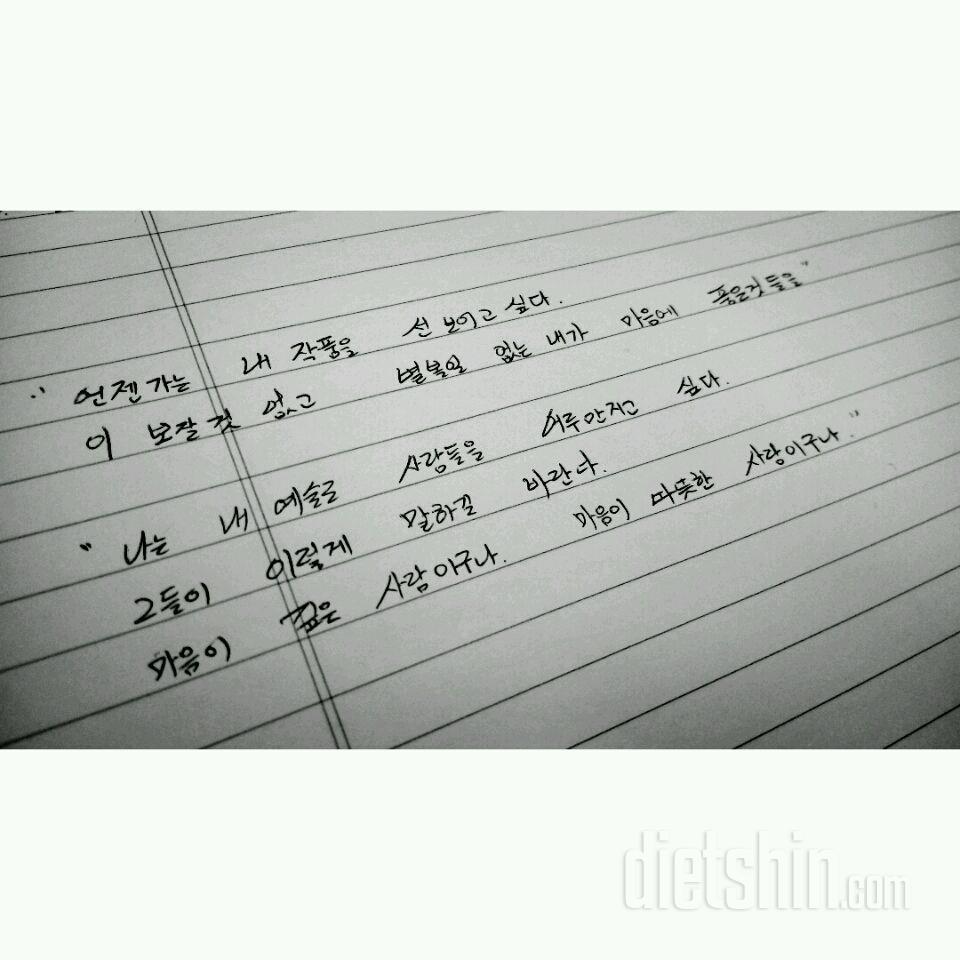 " 언젠가는 내 작품을 선 보이고 싶다.
이 보잘 것 없고 별볼일 없는 내가 마음에 품은것들을"
" 나는 내 예술로 사람들을 어루만지고 싶다.
그들이 이렇게 말하길 바란다.
마음이 깊은 사람이구나. 마음이 따뜻한 사람이구나."
dietshin.com